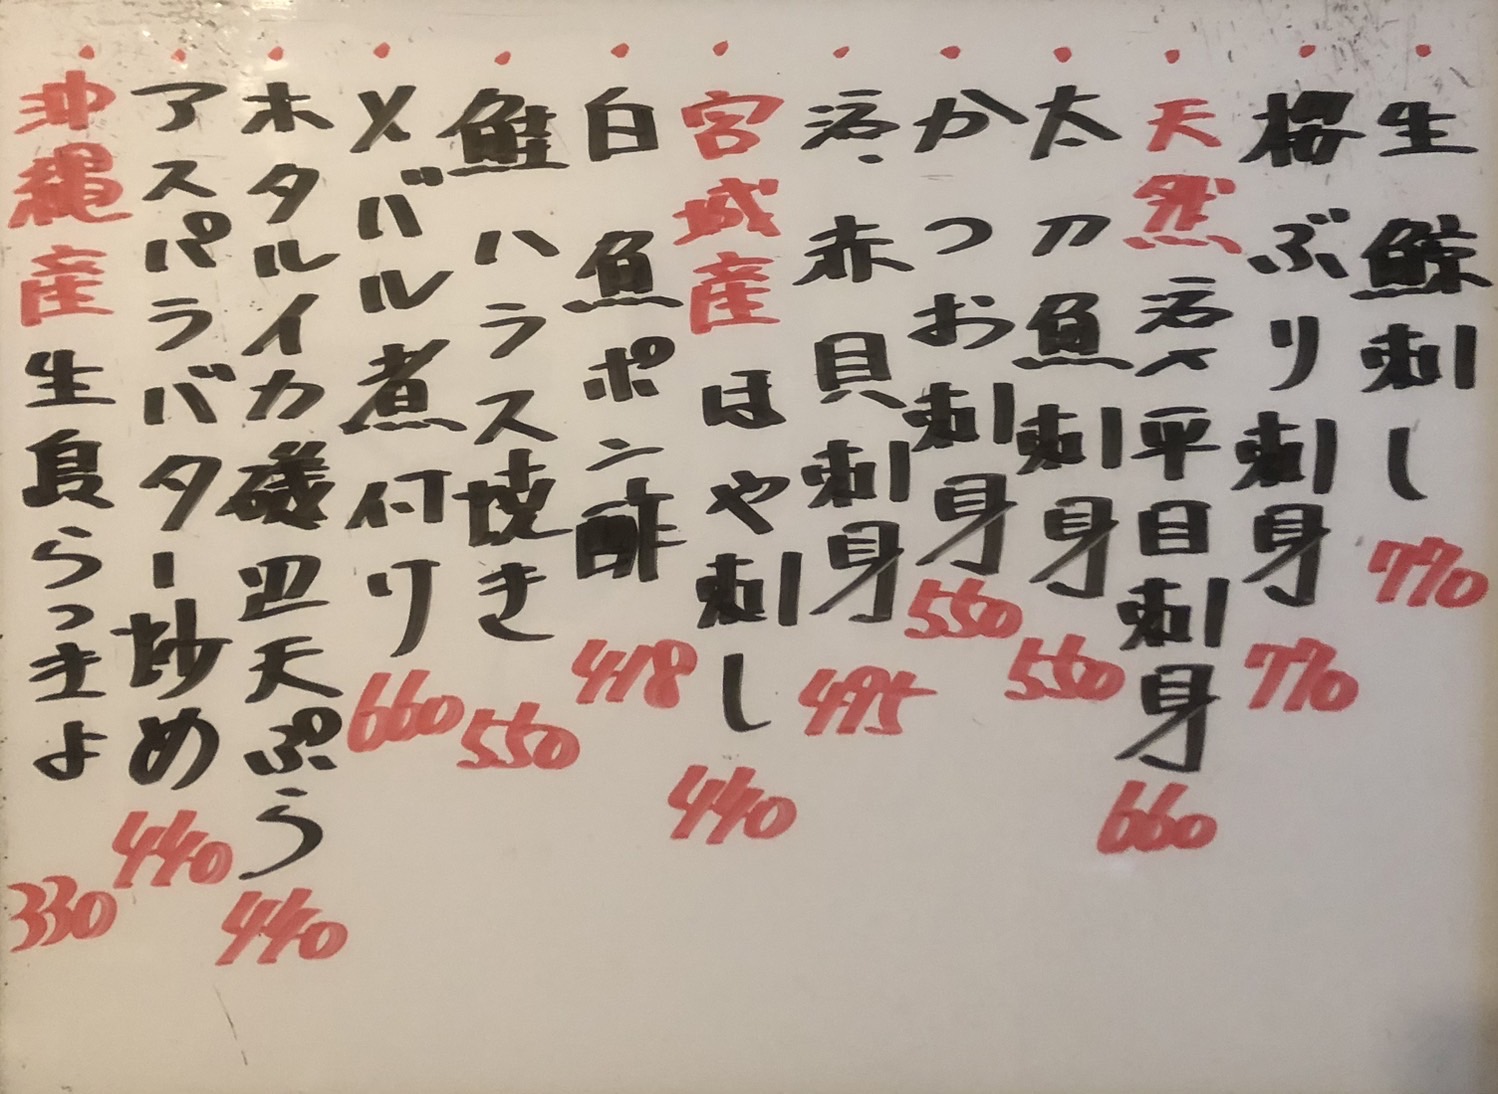 生鯨刺し 770
桜ぶり刺身 770
天然活〆平目刺身 660
太刀魚刺身 550
かつお刺身 550
活赤貝刺身 495
宮城産ほや刺し 440
白魚ポン酢 418
鮭ハラス焼き 550
メバル煮付け 660
ホタルイカ磯辺天ぷら 440
アスパラバター炒め 440
沖縄産生島らっきょ 330